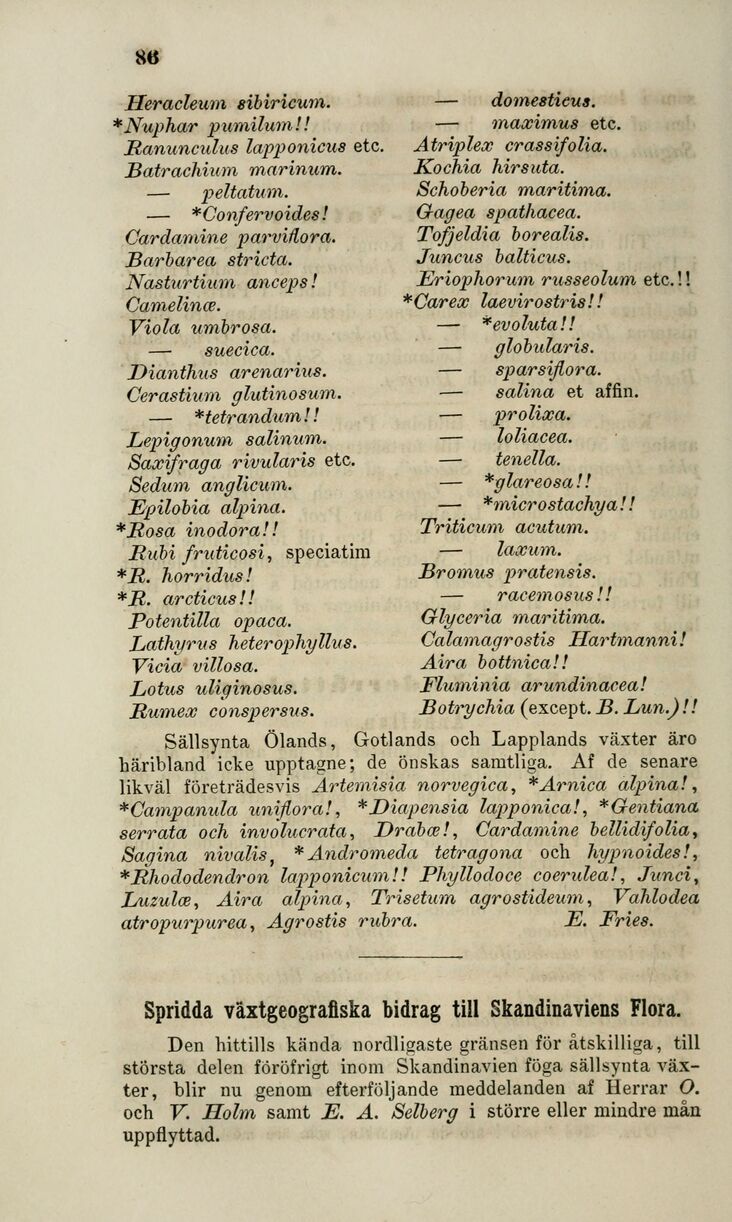 86
Heracleum sibiricum.
*Nuphar pumilum!!
Ranunculus lapponicus etc.
Batrachium marinum.
— peltatum.
— *Confervoides!
Cardamine parviflora.
Barbarea stricta.
Nasturtium anceps!
Camelinæ.
Viola umbrosa.
— suecica.
Dianthus arenarius.
Cerastium glutinosum.
— *tetrandum!!
Lepigonum salinum.
Saxifraga rivularis etc.
Sedum anglicum.
Epilobia alpina.
*Rosa inodora!!
Rubi fruticosi, speciatim
*R. horridus!
*R. arcticus!!
Potentilla opaca.
Lathyrus heterophyllus.
Vicia villosa.
Lotus uliginosus.
Rumex conspersus.
— domesticus.
— maximus etc.
Atriplex crassifolia.
Kochia hirsuta.
Schoberia maritima.
Gagea spathacea.
Tofjeldia borealis.
Juncus balticus.
Eriophorum russeolum etc.!!
*Carex laevirostris!!
— *evoluta!!
— globularis.
— sparsiflora.
— salina et affin.
— prolixa.
— loliacea.
— tenella.
— *glareosa!!
— *microstachya!!
Triticum acutum.
— laxum.
Bromus pratensis.
— racemosus!!
Glyceria maritima.
Calamagrostis Hartmanni!
Aira bottnica!!
Fluminia arundinacea!
Botrychia (except. B. Lun.)!!
Sällsynta Ölands, Gotlands och Lapplands växter äro
häribland icke upptagne; de önskas samtliga. Af de senare
likväl företrädesvis Artemisia norvegica, *Arnica alpina!,
*Campanula uniflora!, *Diapensia lapponica!, *Gentiana
serrata och involucrata, Drabæ!, Cardamine bellidifolia,
Sagina nivalis, *Andromeda tetragona och hypnoides!,
*Rhododendron lapponicum!! Phyllodoce coerulea!, Junci,
Luzulæ, Aira alpina, Trisetum agrostideum, Vahlodea
atropurpurea, Agrostis rubra. E. Fries.
Spridda växtgeografiska bidrag till Skandinaviens Flora.
Den hittills kända nordligaste gränsen för åtskilliga, till
största delen föröfrigt inom Skandinavien föga sällsynta väx-
ter, blir nu genom efterföljande meddelanden af Herrar O.
och V. Holm samt E. A. Selberg i större eller mindre mån
uppflyttad.